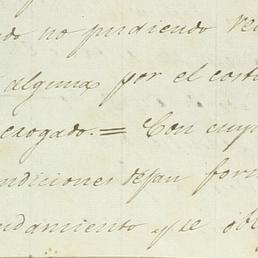 do no pudiendo re
alguna por el cost
erogado.= Con cuy
ndiciones dejan for
ndamiento y se obl